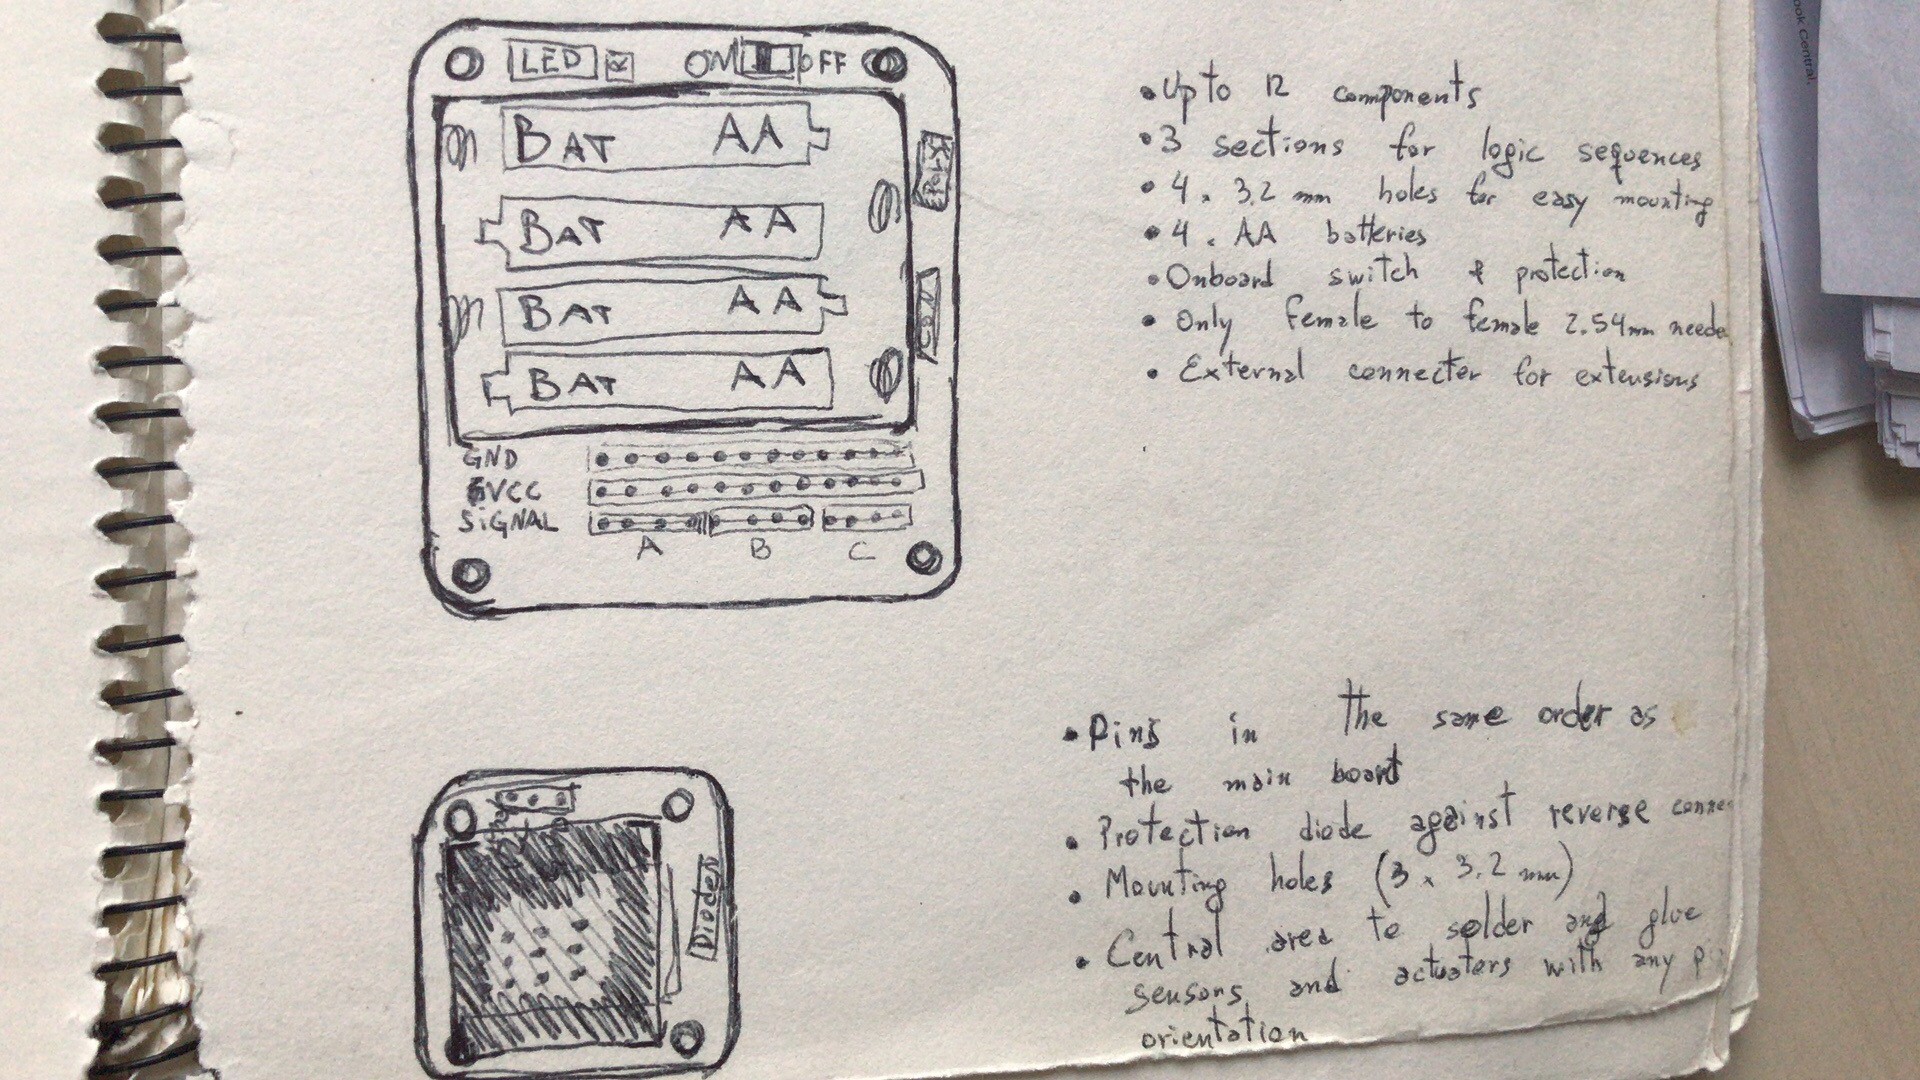 LED R ON OFF
BAT AA
BAT AA
BAT AA
CON
BAT AA
GND
VCC
SiGNAL
A B C
• Up to 12 components
• 3 sections for logic sequences
• 4 x 3.2 mm holes for easy mounting
• 4 x AA batteries
• Onboard switch & protection
• Only female to female 2.54mm neede
• External connecter for extensions
Diodes
• Pins in the same order as
the main board
• Protection diode against reverse conne
• Mounting holes (3 x 3.2 mm)
• Central area to solder and glue
sensors and actuators with any p
orientation